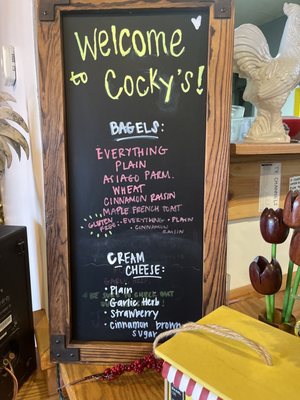 Welcome
to Cocky's!
BAGELS:
EVERYTHING
PLAIN
ASIAGO PARM.
WHEAT
CINNAMON RAISIN
MAPLE FRENCH TOAST
GLUTEN FREE: • EVERYTHING • PLAIN
• CINNAMON RAISIN
CREAM
CHEESE:
• Plain
• Garlic Herb
• Strawberry
• cinnamon brown
sugar